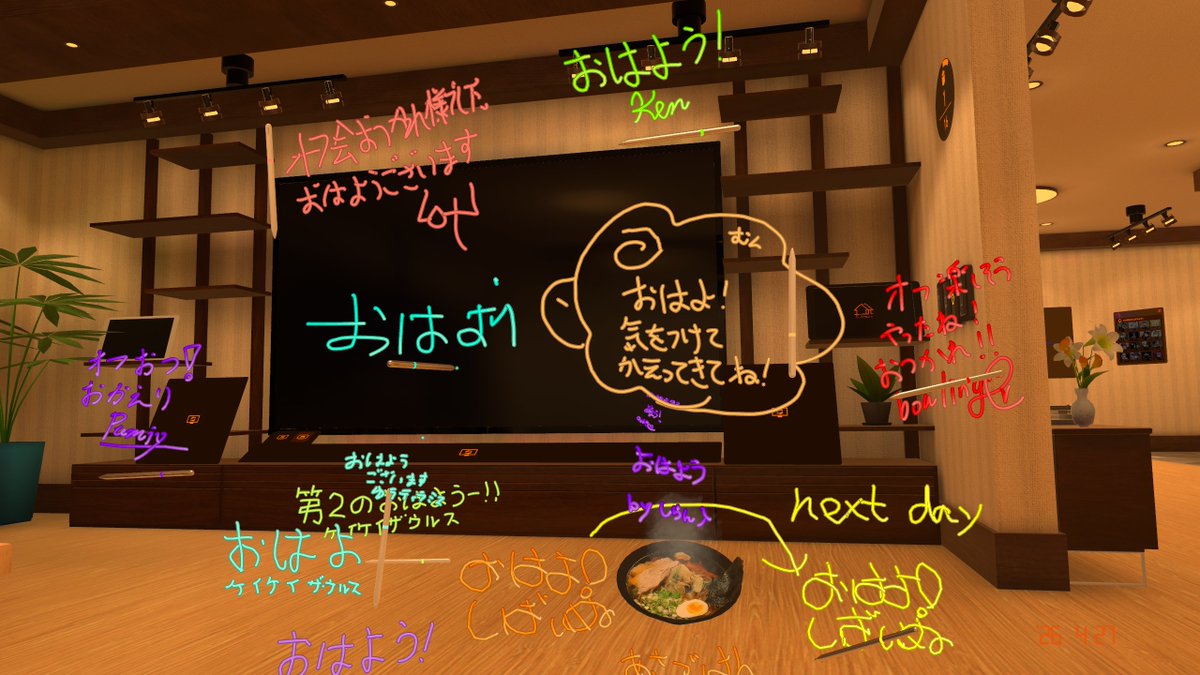 おはよう!
Ken
オフ会おつかれ様でした
おはようございます
おはよう
むん
おはよ!
気をつけて
かえってきてね!
オフ楽しそう
やったね!
おつかれ!!
bowling
オフおつ!
おかえり
おはよう
ございます
第2のおはようー!!
ケイケイザウルス
おはよ
ケイケイザウルス
おはよう
by しらん人
next day
おはよ!
しざいぬ
おはよ!
しざいぬ
おはよう!
あさごはん
26 4 27